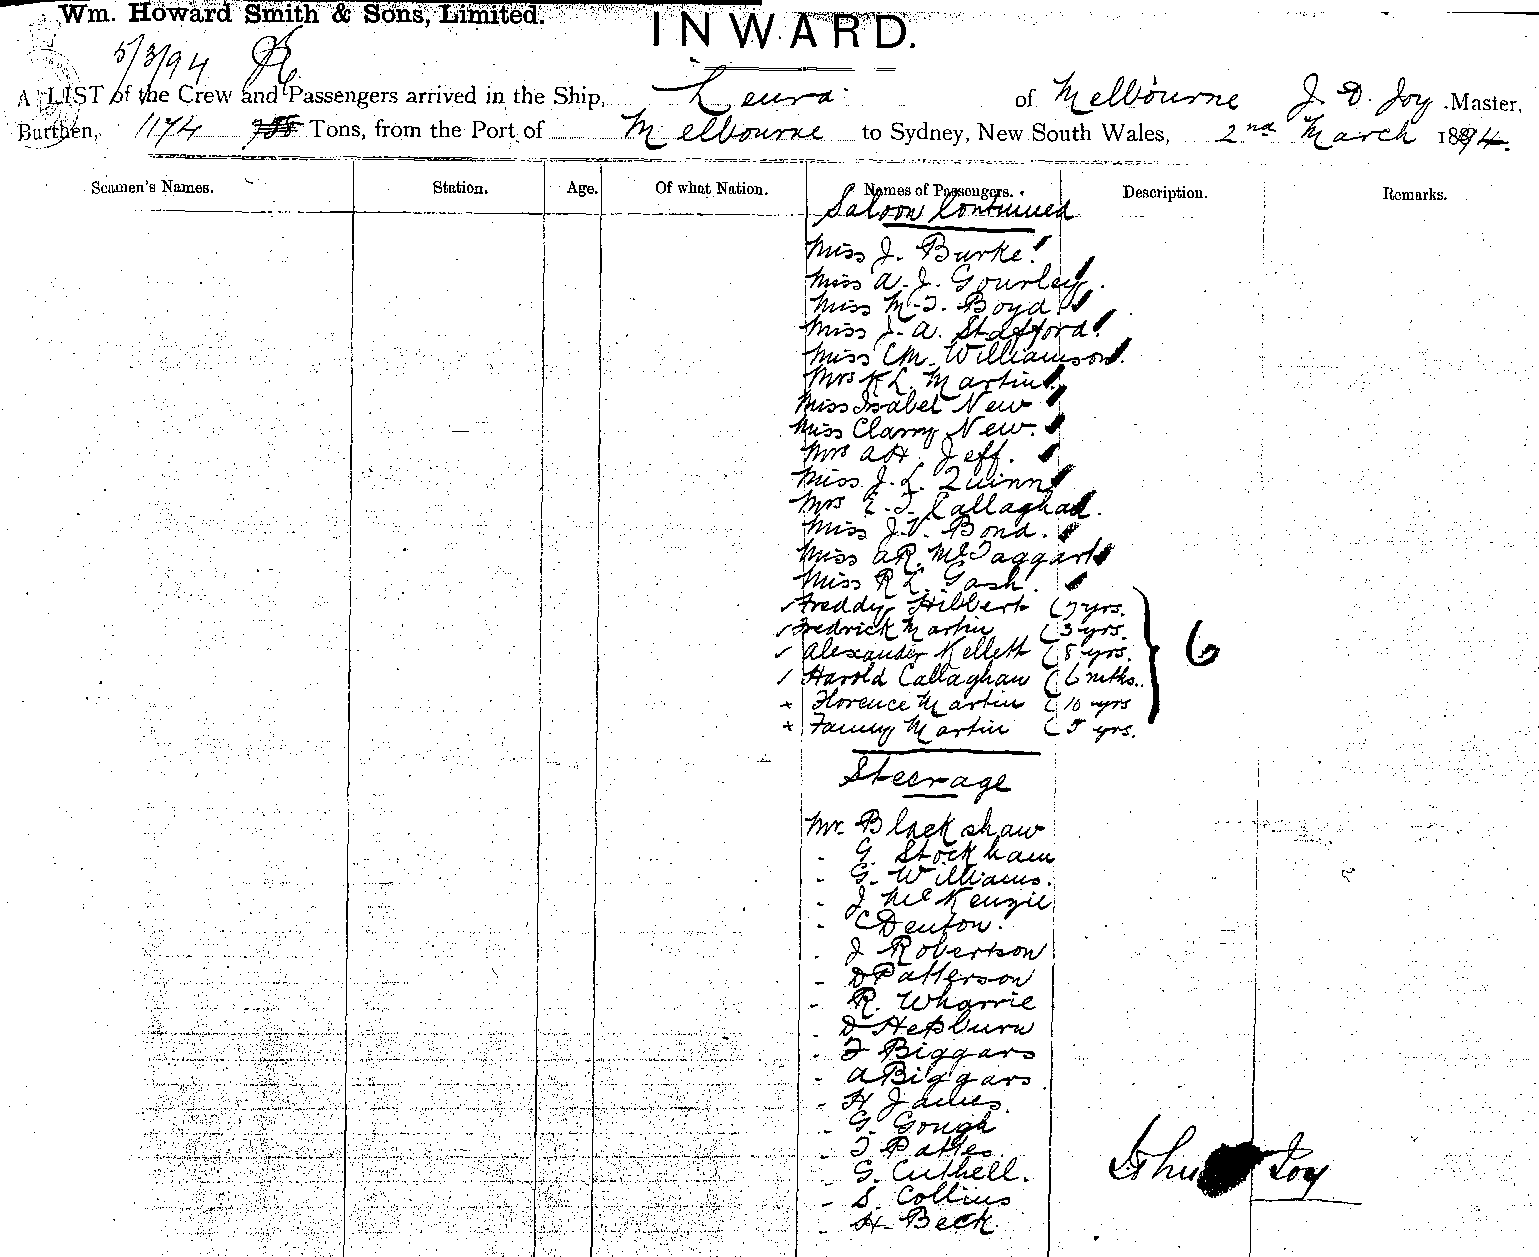 Wm. Howard Smith & Sons, Limited.
INWARD.
5/3/94
A LIST of the Crew and Passengers arrived in the Ship, Leura of Melbourne J. D. Joy Master,
Burthen, 1174 Tons, from the Port of Melbourne to Sydney, New South Wales, 2nd March 1894.
Seamen's Names. Station. Age. Of what Nation. Names of Passengers. Description. Remarks.
Saloon Continued
Miss J. Burke
Miss A. J. Gourley
Miss M. I. Boyd
Miss J. A. Stafford
Miss C M. Williamson
Mrs K L. Martin
Miss Isabel New
Miss Clarry New.
Mrs A H. Jeff.
Miss J. L. Quinn
Mrs E. J. Callaghan.
Miss J. V. Bond.
Miss A R. McTaggart
Miss R L. Gash
Freddy Hibbert (7 yrs.
Fredrick Martin (3 yrs.
Alexander Kellett (8 yrs. 6
Harold Callaghan (6 mths.
x Florence Martin (10 yrs
x Fanny Martin (5 yrs.
Steerage
Mr. Blackshaw
- G. Stockham
- G. Williams.
- J McKenzie
- C Denton.
- J Robertson
- D Patterson
- R. Wharrie
- D Hepburn
- F Biggars
- A Biggars
- H James.
- G. Gough
- T Pattes.
- G. Cuthell.
- S. Collins
- H. Beck.
John Joy